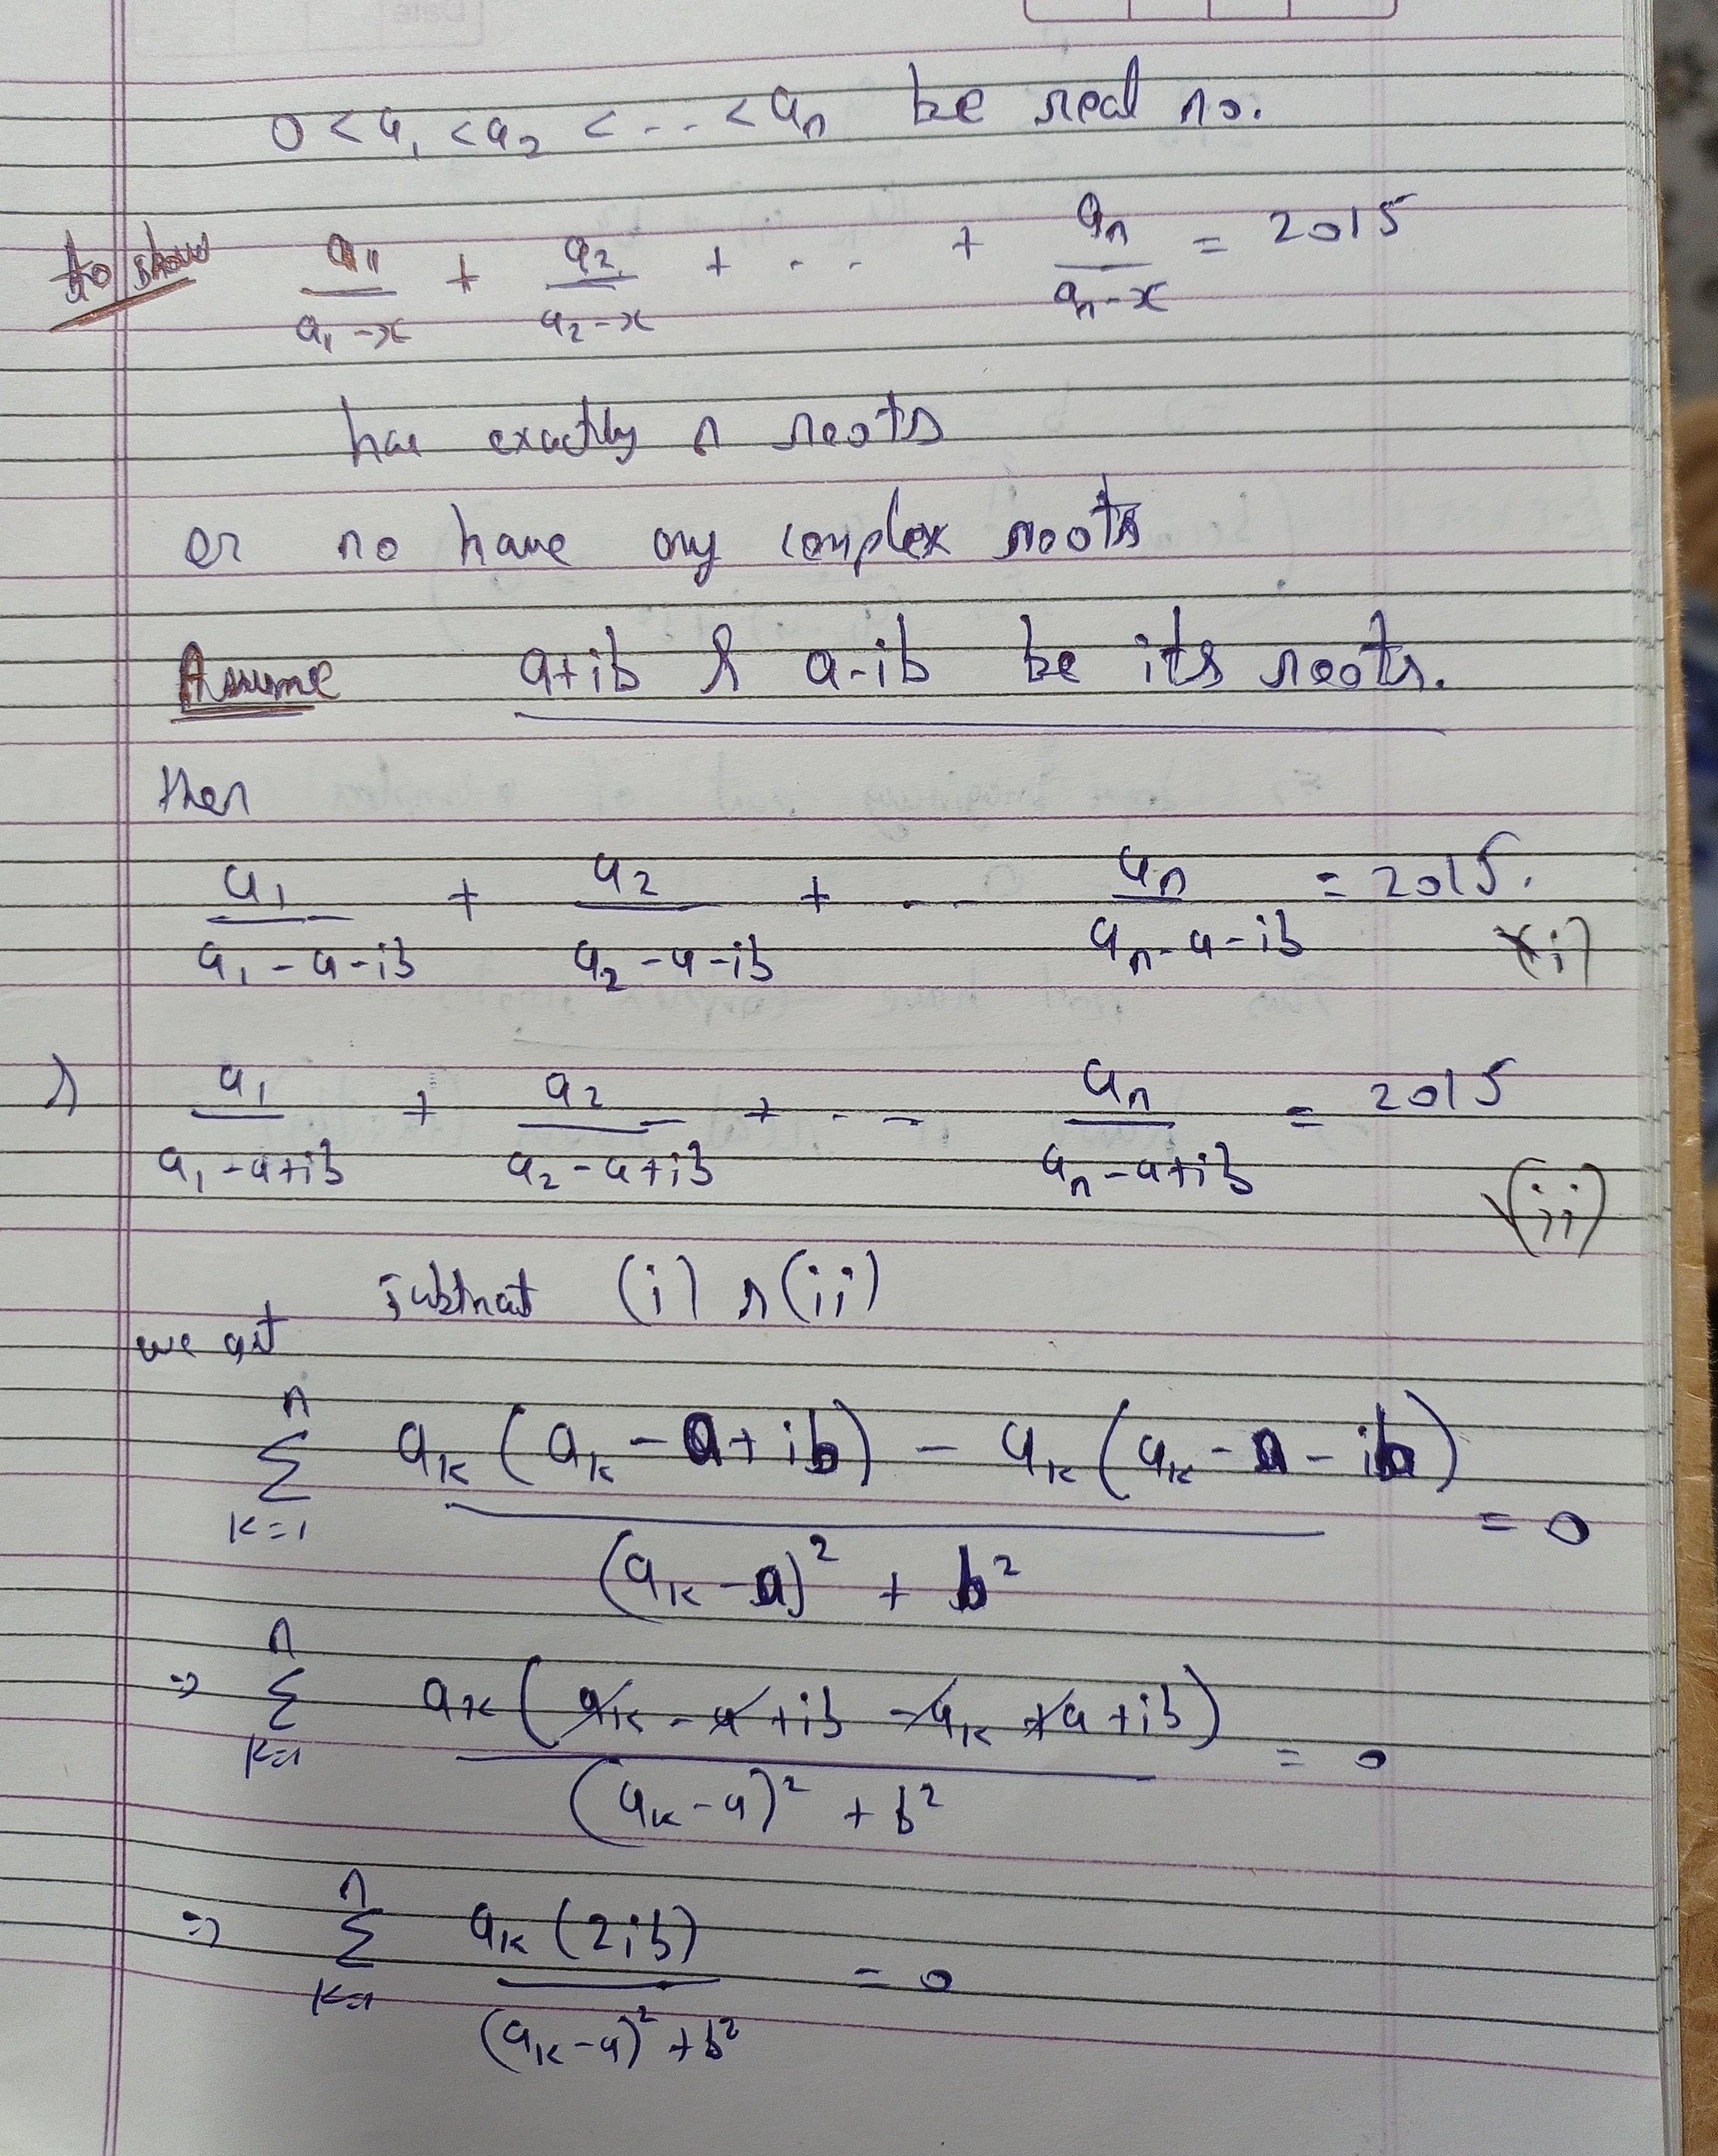 0 < a₁ < a₂ < ... < aₙ be real no.
to show a₁/(a₁-x) + a₂/(a₂-x) + ... + aₙ/(aₙ-x) = 2015
has exactly n roots
or no have any complex roots
Assume a+ib & a-ib be its roots.
then
a₁/(a₁-a-ib) + a₂/(a₂-a-ib) + ... aₙ/(aₙ-a-ib) = 2015. (i)
& a₁/(a₁-a+ib) + a₂/(a₂-a+ib) + ... aₙ/(aₙ-a+ib) = 2015 (ii)
subtract (i) & (ii)
we get
∑_{k=1}^{n} (aₖ(aₖ-a+ib) - aₖ(aₖ-a-ib))/((aₖ-a)² + b²) = 0
⇒ ∑_{k=1}^{n} aₖ(aₖ-a+ib-aₖ+a+ib)/((aₖ-a)² + b²) = 0
⇒ ∑_{k=1}^{n} aₖ(2ib)/((aₖ-a)²+b²) = 0